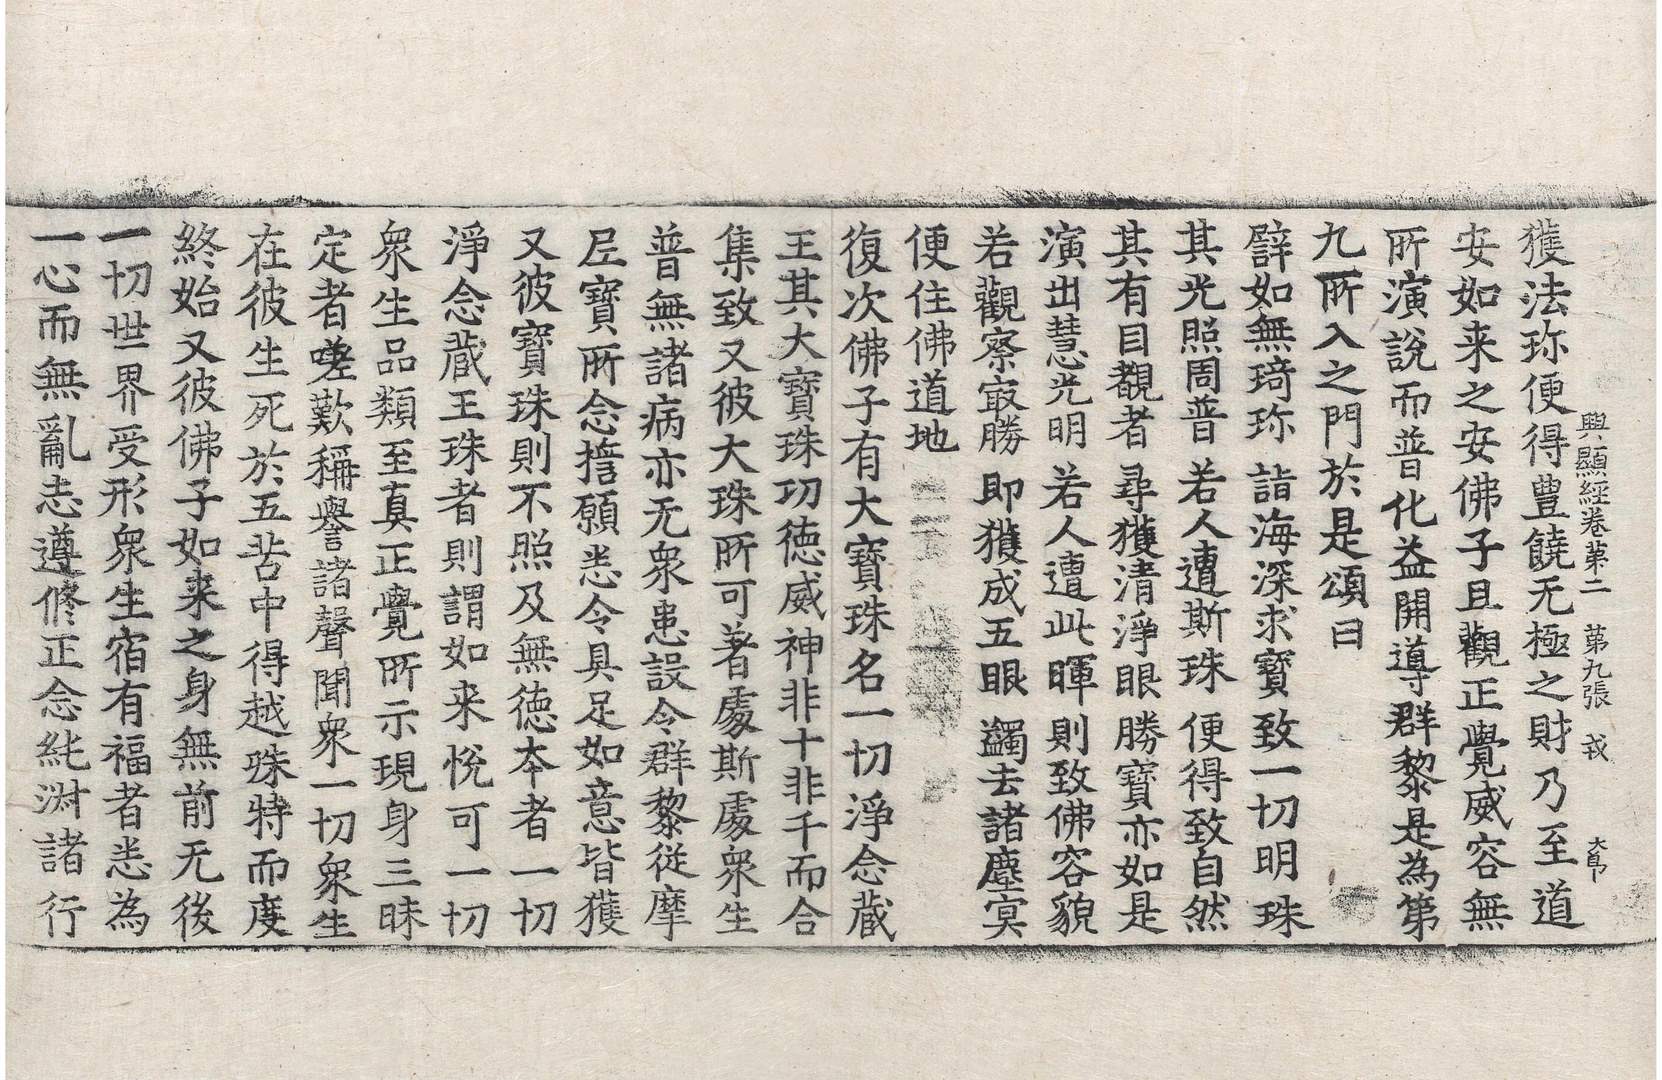 興顯經卷苐二 苐九張 𢦙 大㫖
獲法珎便得豊饒无極之財乃至道
安如来之安佛子且觀正覺威容無
所演說而普化益開導群黎是為第
九所入之門於是頌曰
譬如無琦珎 詣海深求寶致一切明珠
其光照周普 若人遭斯珠 便得致自然
其有目覩者 尋獲清淨眼 勝寶亦如是
演出慧光明 若人遭此暉 則致佛容貌
若觀察㝡勝 即獲成五眼 蠲去諸塵冥
便住佛道地
復次佛子有大寶珠名一切淨念藏
王其大寶珠功德威神非十非千而合
集致又彼大珠所可著處斯處衆生
普無諸病亦无衆患設令群黎從摩
尼寶所念摿願悉令具足如意皆獲
又彼寶珠則不照及無德夲者一切
淨念藏王珠者則謂如来悅可一切
衆生品類至真正覺所示現身三昧
定者嗟歎稱譽諸聲聞衆一切衆生
在彼生死於五苦中得越殊特而度
終始又彼佛子如来之身無前无後
一切世界受形衆生宿有福者悉為
一心而無亂志遵俢正念純淑諸行